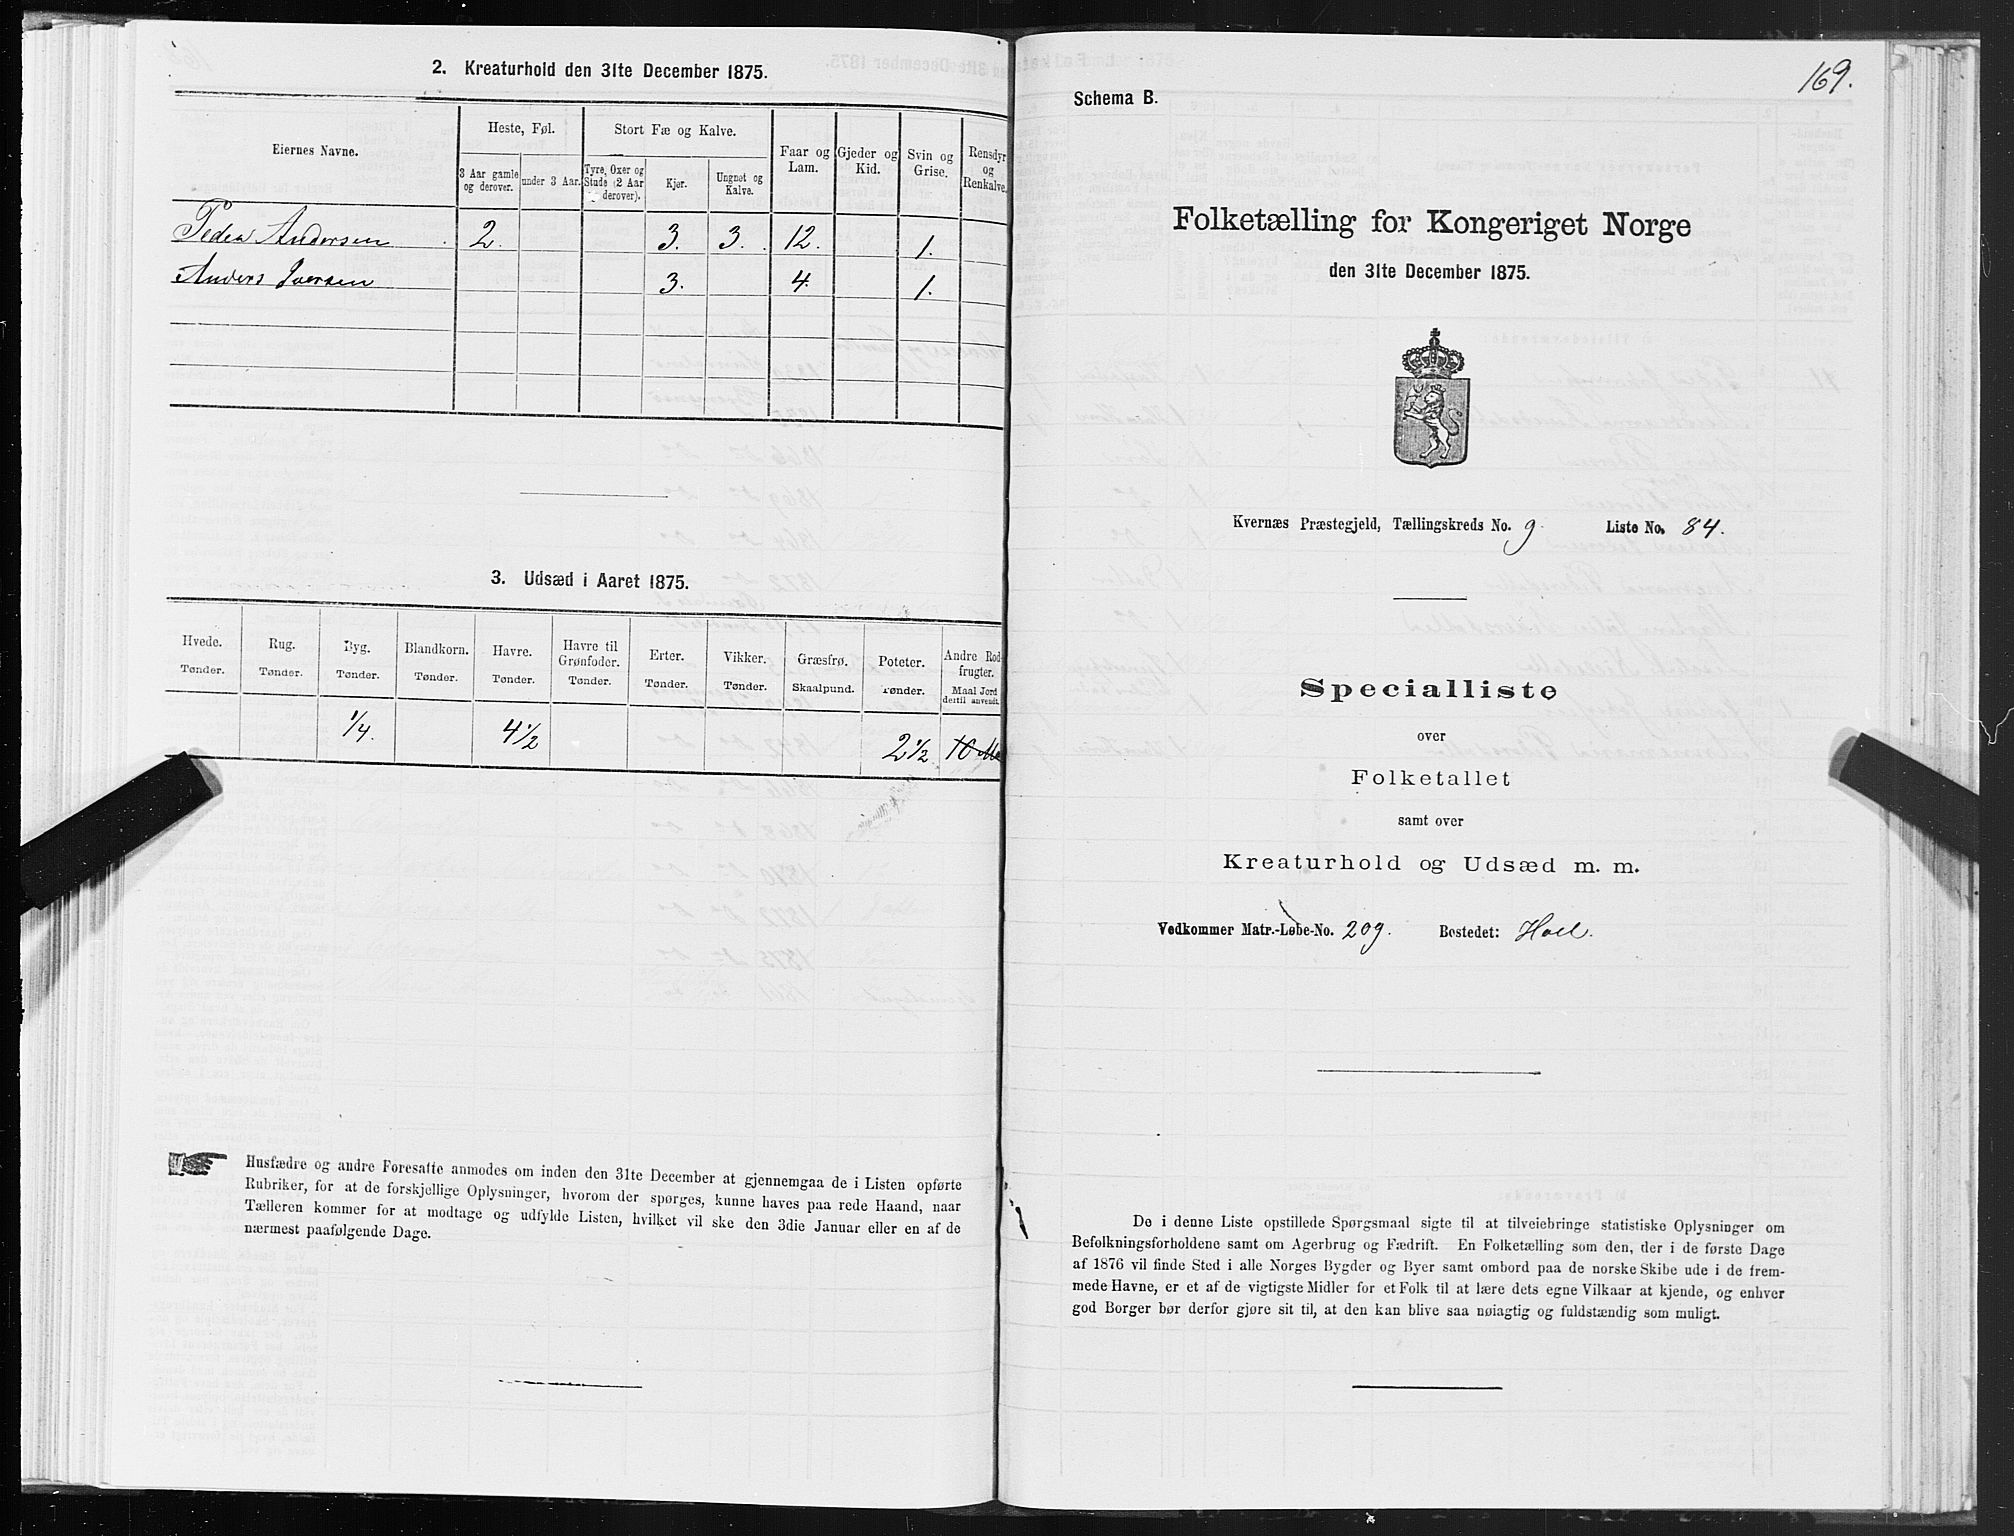 2. Kreaturhold den 31te December 1875.
Eiernes Navne.
Heste, Føl.
Stort Fæ og Kalve.
Faar og Lam.
Gjeder og Kid.
Svin og Grise.
Rensdyr og Renkalve.
3 Aar gamle og derover.
under 3 Aar.
Tyre, Oxer og Stude (2 Aar derover).
Kjør.
Ungnøt og Kalve.
Peder Andersen 2. 3. 3. 12. 1.
Anders Iversen 3. 4. 1.
3. Udsæd i Aaret 1875.
Hvede. Rug. Byg. Blandkorn. Havre. Havre til Grønfoder. Erter. Vikker. Græsfrø. Poteter. Andre Rodfrugter.
Tønder. Tønder. Tønder. Tønder. Tønder. Tønder. Tønder. Tønder. Skaalpund. Tønder. Maal Jord dertil anvendt.
1/4. 4 1/2 2 1/2 10
Husfædre og andre Foresatte anmodes om inden den 31te December at gjennemgaa de i Listen opførte
Rubriker, for at de forskjellige Oplysninger, hvorom der spørges, kunne haves paa rede Haand, naar
Tælleren kommer for at modtage og udfylde Listen, hvilket vil ske den 3die Januar eller en af de
nærmest paafølgende Dage.
169.
Schema B.
Folketælling for Kongeriget Norge
den 31te December 1875.
Kvernæs Præstegjeld, Tællingskreds No. 9. Liste No. 84.
Specialliste
over
Folketallet
samt over
Kreaturhold og Udsæd m. m.
Vedkommer Matr.-Løbe-No. 209. Bostedet: Hoel.
De i denne Liste opstillede Spørgsmaal sigte til at tilveiebringe statistiske Oplysninger om
Befolkningsforholdene samt om Agerbrug og Fædrift. En Folketælling som den, der i de første Dage
af 1876 vil finde Sted i alle Norges Bygder og Byer samt ombord paa de norske Skibe ude i de frem-
mede Havne, er et af de vigtigste Midler for et Folk til at lære dets egne Vilkaar at kjende, og enhver
god Borger bør derfor gjøre sit til, at den kan blive saa nøiagtig og fuldstændig som muligt.